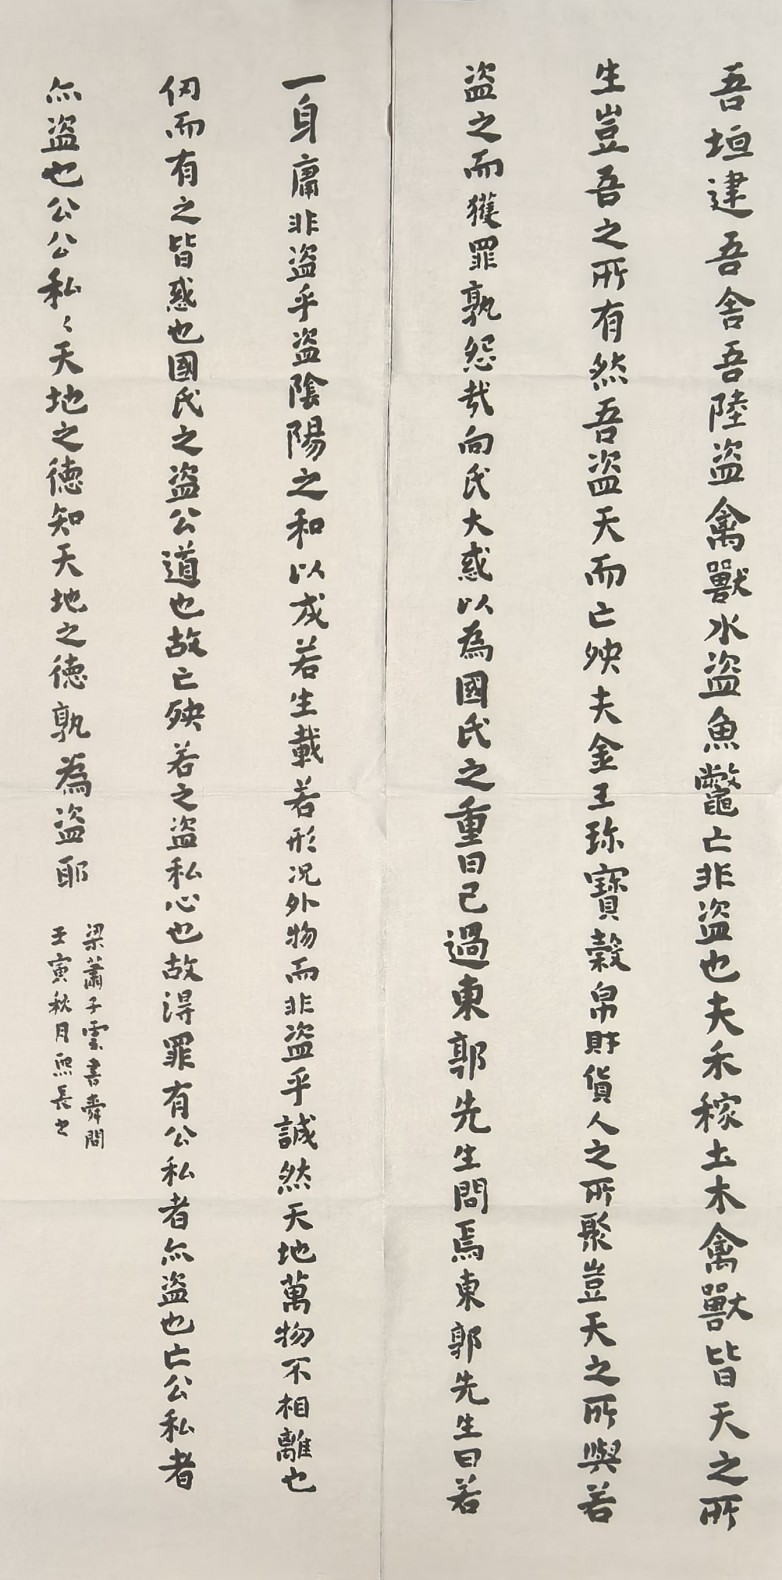 吾垣建吾舍吾陸盜禽獸水盜魚鼈亡非盜也夫禾稼土木禽獸皆天之所
生豈吾之所有然吾盜天而亡殃夫金玉珎寶穀帛財貨人之所聚豈天之所與若
盜之而獲罪孰怨哉向氏大惑以為國氏之重罔己過東郭先生問焉東郭先生曰若
一身庸非盜乎盜陰陽之和以成若生載若形况外物而非盜乎誠然天地萬物不相離也
仞而有之皆惑也國氏之盜公道也故亡殃若之盜私心也故得罪有公私者亦盜也亡公私者
亦盜也公公私〻天地之德知天地之德孰為盜耶
梁蕭子雲書舜問
壬寅秋月熙長書